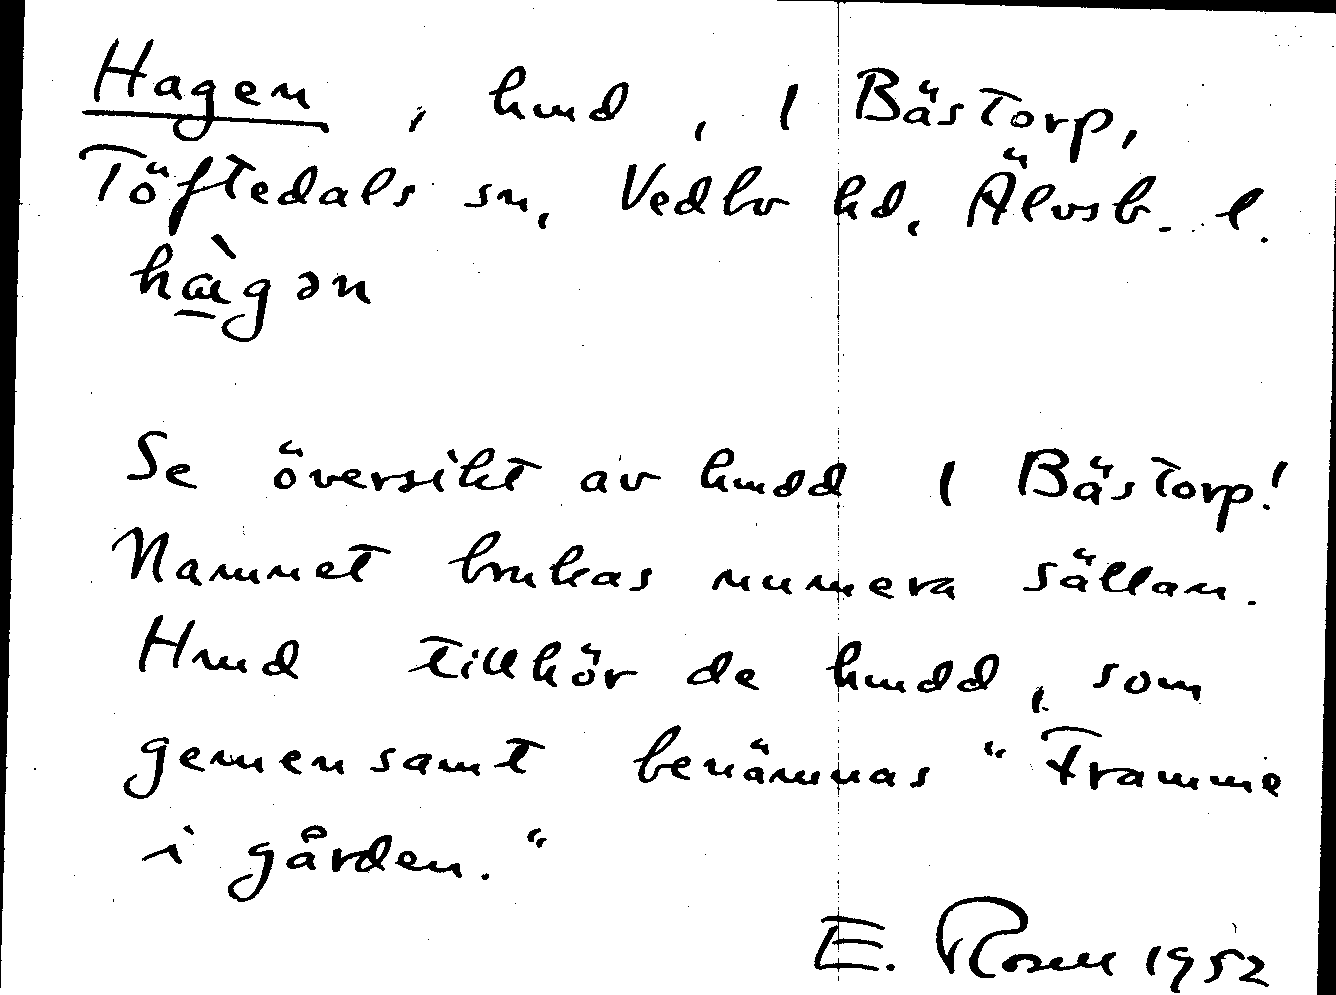 Hagen, hmd, 1 Bästorp,
Töftedals sn, Vedbo hd, Älvsb. l.
hàgən
Se översikt av hmdd 1 Bästorp!
Namnet brukas numera sällan.
Hmd tillhör de hmdd, som
gemensamt benämnas "Framme
i gården."
E. Rosell 1952